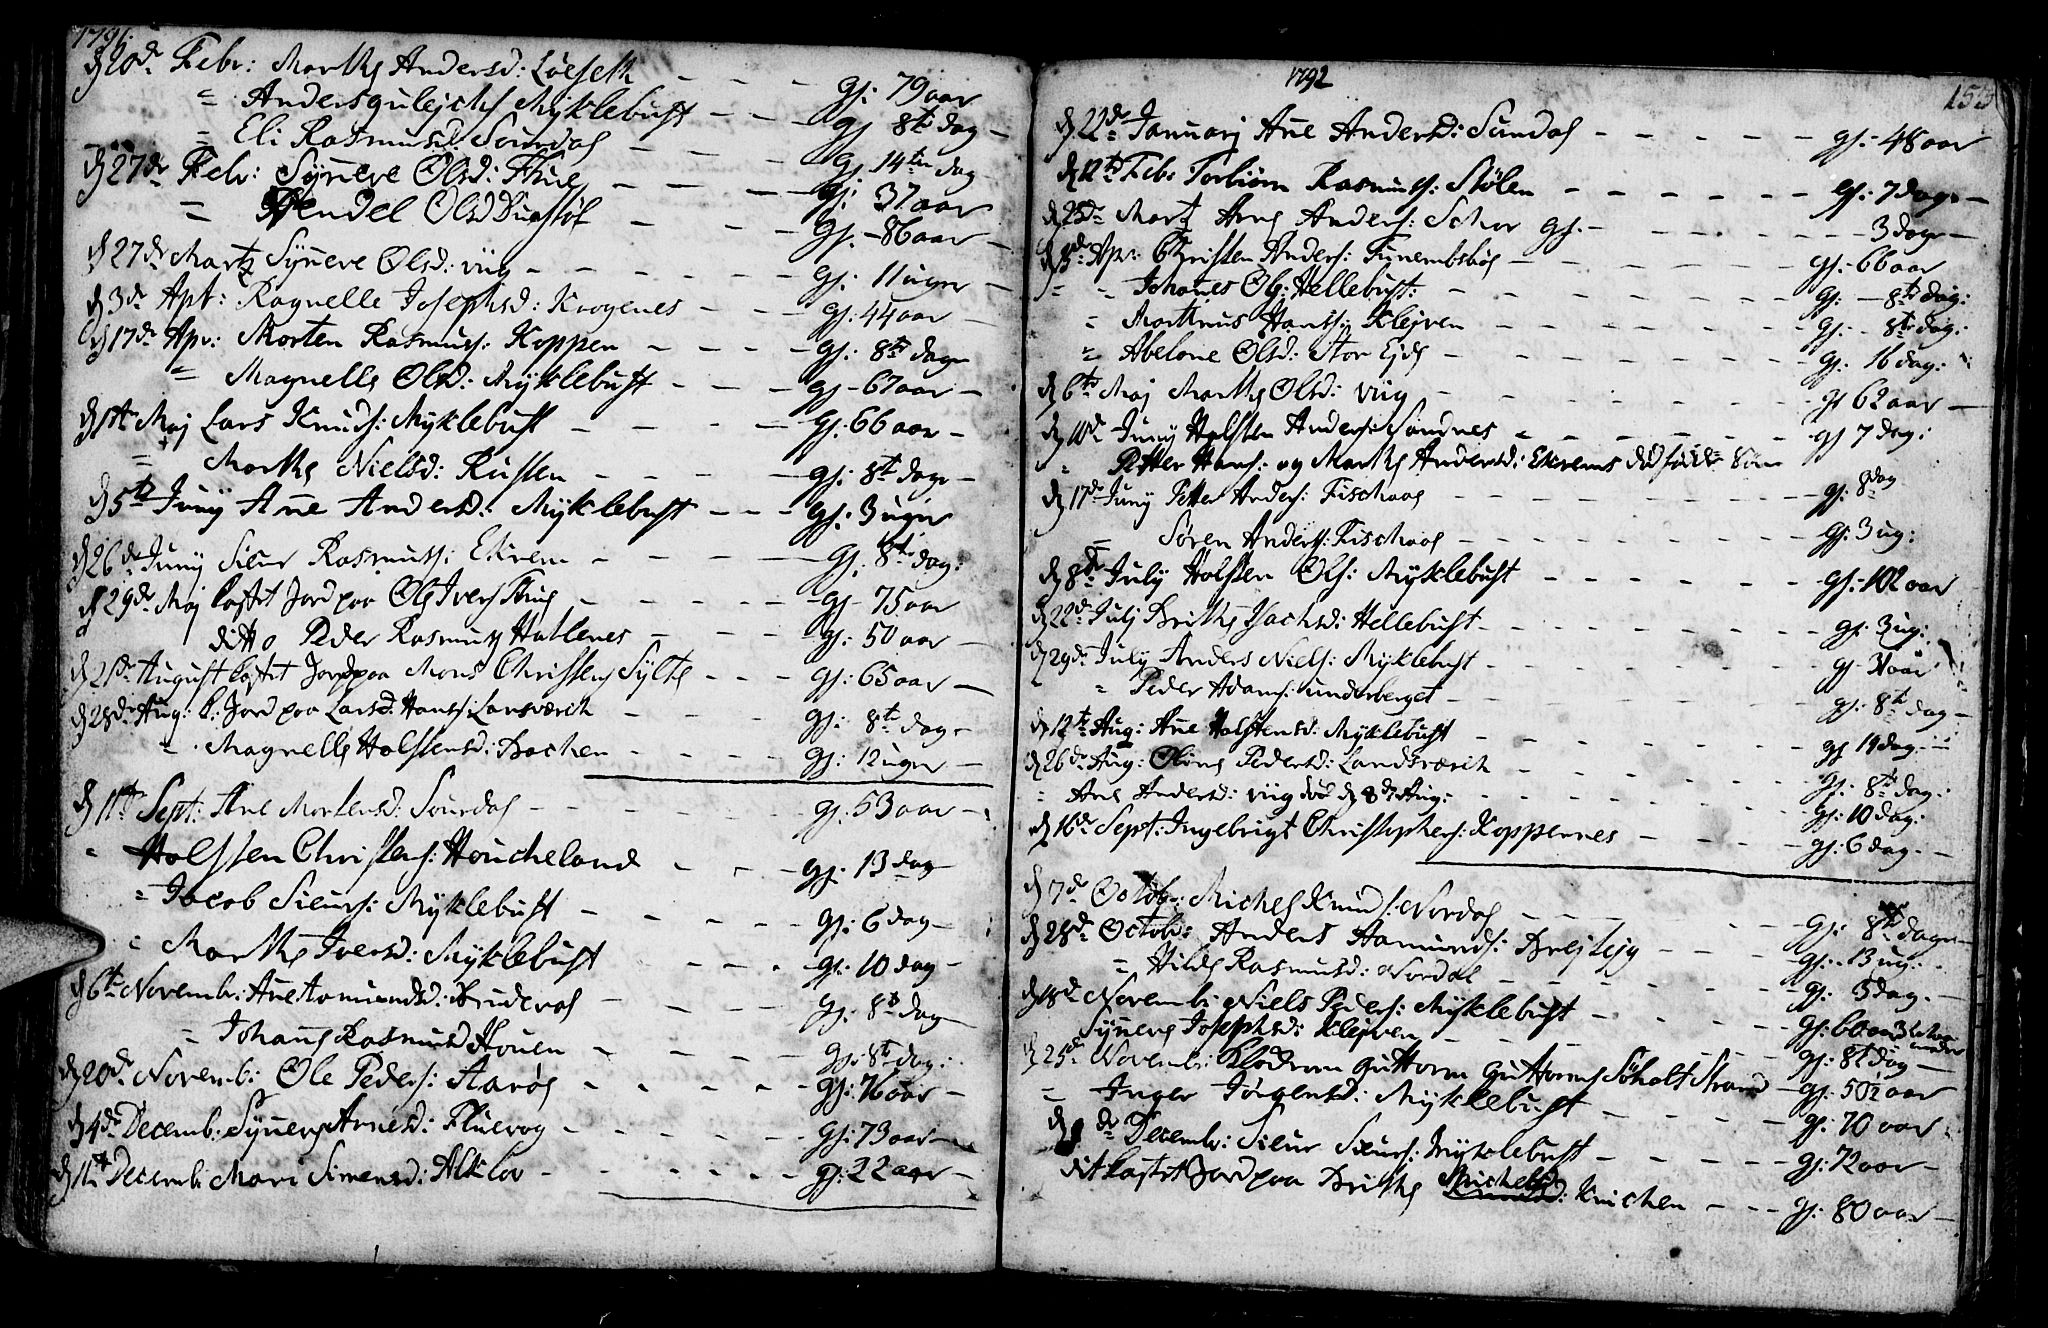 1791.
d 20de Febr: Marthe Andersd: Løeseth - - - gl: 79 aar
" Anders gulejchs Myklebust - - gl 8te dag -
" Eli Rasmusd Sourdal - - - gl. 14ten dag
d 27de Febr: Synneve Olsd: Flue - - - gl: 37 aar
" Hendel Olsd - - gl. - 86 aar -
d 27de Martz Synneve Olsd: viig - - - gl: 11 uger -
d 3de Apr: Ragnelle Josephsd: Krogenes - - - gl: 44 aar -
d 17de Apr: Morten Rasmuss: Koppen - - - gl: 8te dage
" Magnelle Olsd: Myklebust - - - gl - 67 aar -
d 1te Maj Lars Knuds: Myklebust - - - gl: 66 aar -
" Marthe Nielsd: Rusten - - - gl: 8te dage -
d 5te Juny Ane Andersd: Myklebust - - - gl: 3 uger
d 26de Juny Siur Rasmuss: Ekrem - - - gl: 8te dag:
d 29de Maj kastet Jord paa Ole Ivers - - - gl - 75 aar
ditto Peder Rasmuss Hatlenes - - - gl: 50 aar -
d 21de August kastet Jord paa Mons Christens Sylte - - - gl: 65 aar -
d 28de Aug: k: Jord paa Larsd: Hans: Larsværch - - gl: 8te dag -
" Magnelle Holstensd: Bachen - - - gl: 12 uger -
d 11te Sept: Ane Mortensd: Sourdal - - - gl: 53 aar -
" Holsten Christens: Houcheland - - - gl: 13 dag
" Jacob Siurs: Myklebust - - - gl: 6 dag -
" Marthe Iversd: Myklebust - - - gl: 10 dag -
d 6te Novemb: Ane Amundsd: Brudevol - - gl: 8te dag
" Johanne Rasmusd Houen - - gl: 8te dag:
d 20de Novemb: Ole Peders: Aarøe - - - gl: 76 aar -
d 4de Decemb: Synneve Arnesd: Fluevog - - - gl: 73 aar -
d 11te Decemb: Mari Simensd: Alklov - - - gl: 22 aar -
1792
153
d 22de Januarj Ane Andersd: Sundal - - - gl: 48 aar
d 12te Feb: Torbiørn Rasmuss: Stølen - - - gl: 7 dage -
d 25de Martz Arne Anders: Schor gl. - - - 3 dage -
d 8de Apr: Christen Anders: - - - gl: 66 aar
" Johanes Ols: Hellebust: - - - gl: - 8te dag:
" Marthnus Hans: Klejven - - - gl: - 8te dag:
" Abelone Olsd: Stor Ejde - - - gl: 16 dag:
d 6te Maj Marthe Olsd: viig - - - gl 62 aar -
d 10de Juny Holsten Anders: Sandnes - - - gl 7 dag:
" Petter Hans: og Marthe Andersd: Ekrems død fødde Søn
d 17de Juny Petter Anders: Fischaae - - - gl: 8 dag
" Søren Anders: Fischaae - - - gl: 3 ug:
d 8de July Holsten Ols: Myklebust - - - gl: 102 aar
d 22de July Brithe Isachsd: Hellebust - - - gl: 3 ug:
d 29de July Anders Niels: Myklebust - - - gl - 31 aar
" Peder Adams: underberget - - - gl: 8te dag -
d 12te Aug: Ane Holstensd: Myklebust - - - gl 19 dag -
d 26de Aug: Oline Pedersd: Landsværch - - - gl: 8te dag -
" Ane Andersd: viig død d 8de Aug: - - - gl: 10 dag:
d 16de Sept: Ingebrigt Christophers: Koppernes - - - gl: 6 dag -
d 7de Octobr: Michel Knuds: Nordal - - - gl: 8te dage
d 28de Octobr: Anders Aamunds: Brejtejg - - - gl: 13 ug:
" Hilde Rasmusd: Nordal - - - gl: 5 dag -
d 18de Novemb: Niels Peders: Myklebust - - - gl: 60 aar 3
Synneve Josephsd: Klejven - - - gl: 8te dag -
d 25de Novemb: Klodrom Guttorm Guttorms Søholt Strand - gl: 50½ aar
" Inger Jørgensd: Myklebust - - - gl: 70 aar
d de Decemb: Siur Siurs: Myklebust - - - gl: 72 aar -
dit kastet Jord paa Brithe Michelsd: Knichen - - - gl: 80 aar -